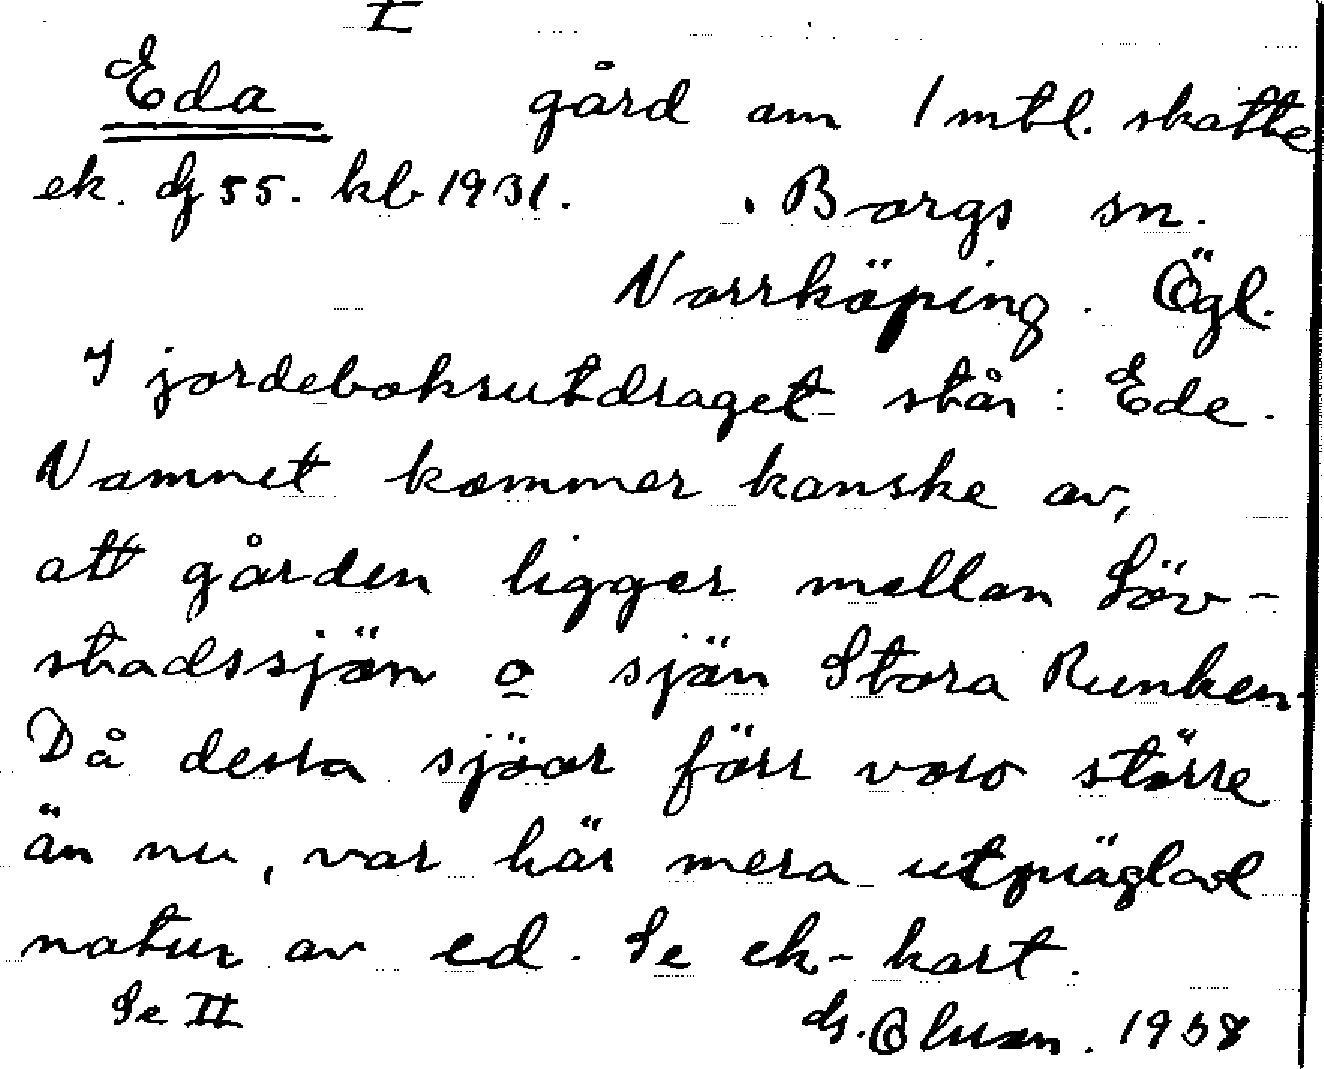 I
Eda gård om 1 mtl. skatte
ek. dj 55. kb 1931. Borgs sn.
Norrköping. Ögl.
I jordeboksutdraget står: Ede.
Namnet kommer kanske av,
att gården ligger mellan Löv-
stadssjön o sjön Stora Runken.
Då dessa sjöar förr voro större
än nu, var här mera utpräglad
natur av ed. Se ek-kart.
Se II
1958